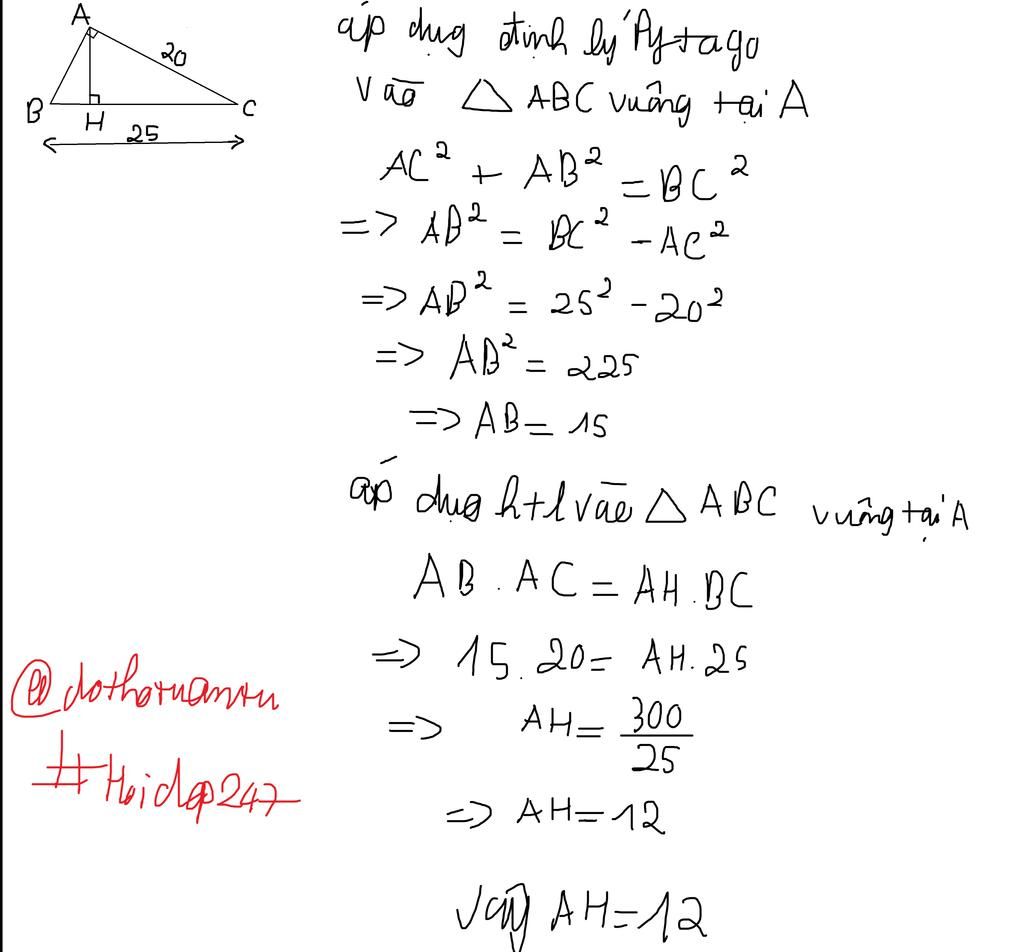 A
20
B
H
C
25
áp dụg định lý Pytago
vào △ ABC vuông tại A
AC² + AB² = BC²
=> AB² = BC² - AC²
=> AB² = 25² - 20²
=> AB² = 225
=> AB = 15
áp dụg htl vào △ ABC vuông tại A
AB . AC = AH . BC
=> 15 . 20 = AH . 25
=> AH = 300/25
=> AH = 12
Vậy AH = 12
#Hoidap247